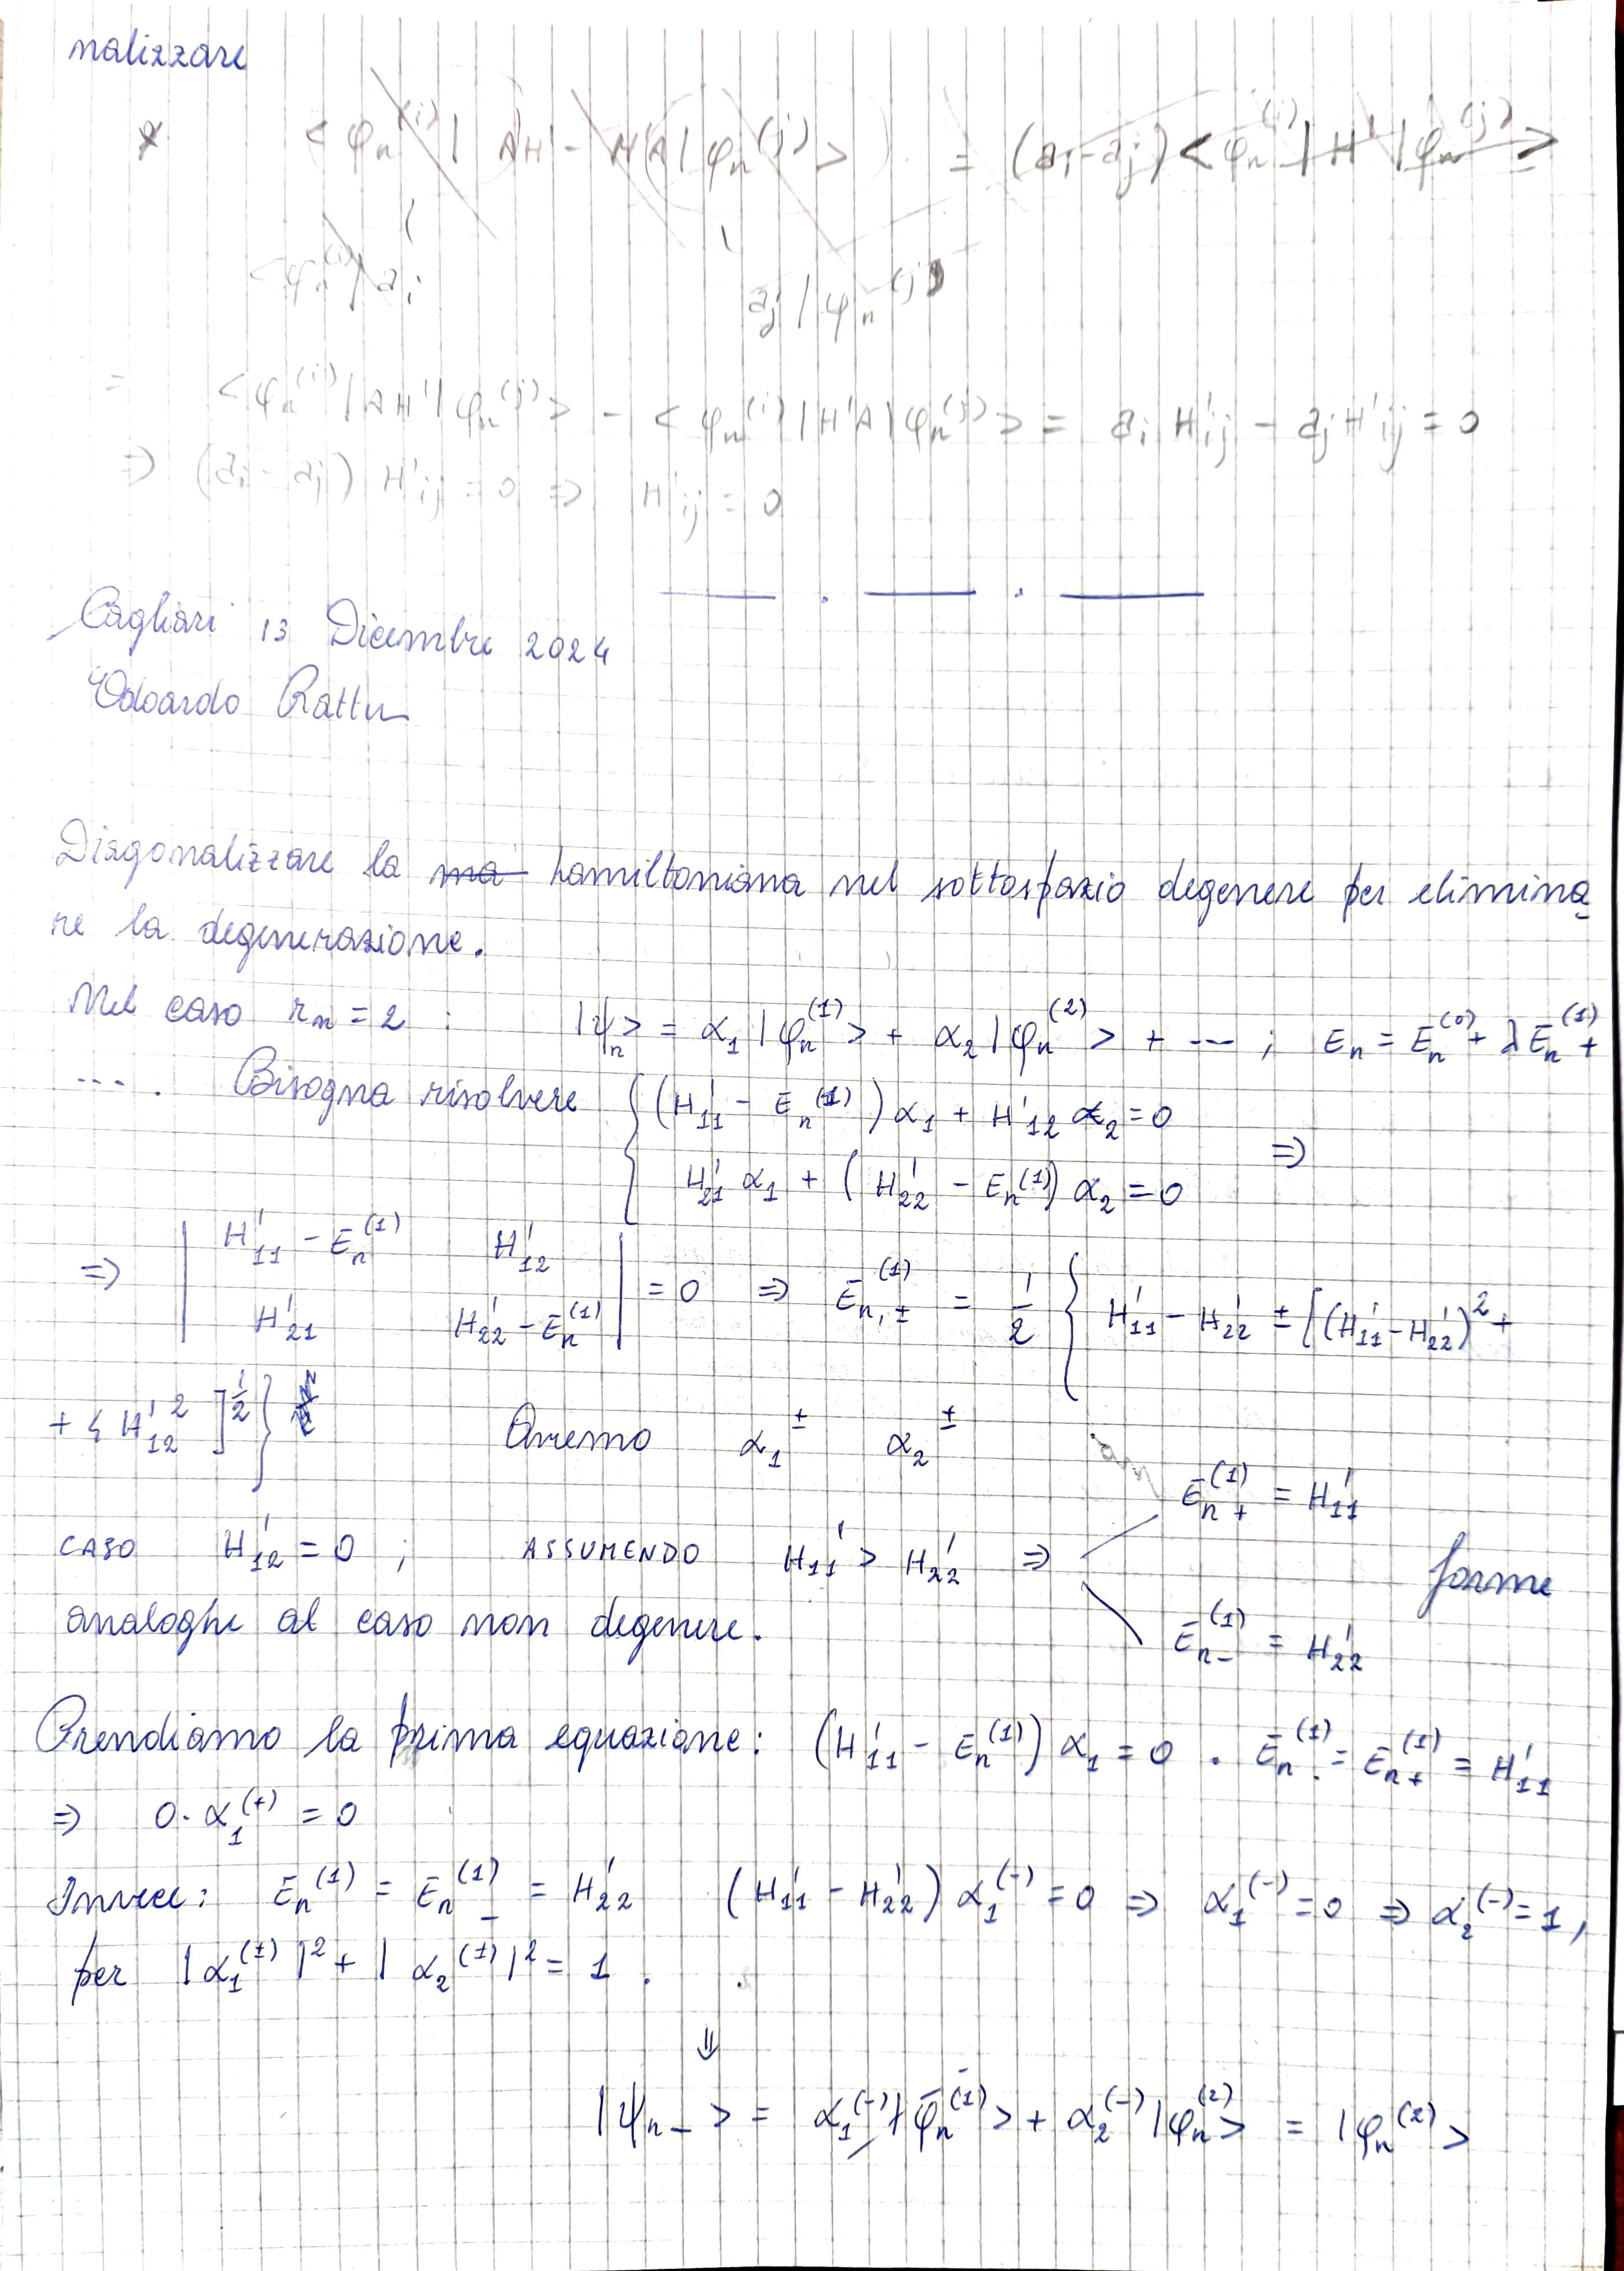 nalizzare
* < φn^(i) | AH' - H'A | φn^(j) > = (ai - aj) < φn^(i) | H' | φn^(j) >
< φn^(i) | ai aj | φn^(j)
= < φn^(i) | A H' | φn^(j) > - < φn^(i) | H'A | φn^(j) > = ai H'ij - aj H'ij = 0
⇒ (ai - aj) H'ij = 0 ⇒ H'ij = 0
Cagliari 13 Dicembre 2024
Edoardo Rattu
Diagonalizzare la ma hamiltoniana nel sottospazio degenere per elimina
re la degenerazione.
Nel caso rn = 2 : |ψn> = α1 |φn^(1)> + α2 |φn^(2)> + --- ; En = En^(0) + λ En^(1) +
--- . Bisogna risolvere { (H'11 - En^(1)) α1 + H'12 α2 = 0
H'21 α1 + (H'22 - En^(1)) α2 = 0 ⇒
⇒ | H'11 - En^(1) H'12
H'21 H'22 - En^(1) | = 0 ⇒ En,±^(1) = 1/2 { H'11 - H'22 ± [(H'11 - H'22)^2 +
+ 4 H'12^2 ]^1/2 } Avremo α1^± α2^±
En+^(1) = H'11
CASO H'12 = 0 ; ASSUMENDO H'11 > H'22 ⇒ forme
En-^(1) = H'22
analoghe al caso non degenere.
Prendiamo la prima equazione: (H'11 - En^(1)) α1 = 0 . En^(1) = En+^(1) = H'11
⇒ 0· α1^(+) = 0
Invece: En^(1) = En-^(1) = H'22 (H'11 - H'22) α1^(-) = 0 ⇒ α1^(-) = 0 ⇒ α2^(-) = 1,
per |α1^(±)|^2 + |α2^(±)|^2 = 1 .
⇓
|ψn-> = α1^(-) |φn^(1)> + α2^(-) |φn^(2)> = |φn^(2)>